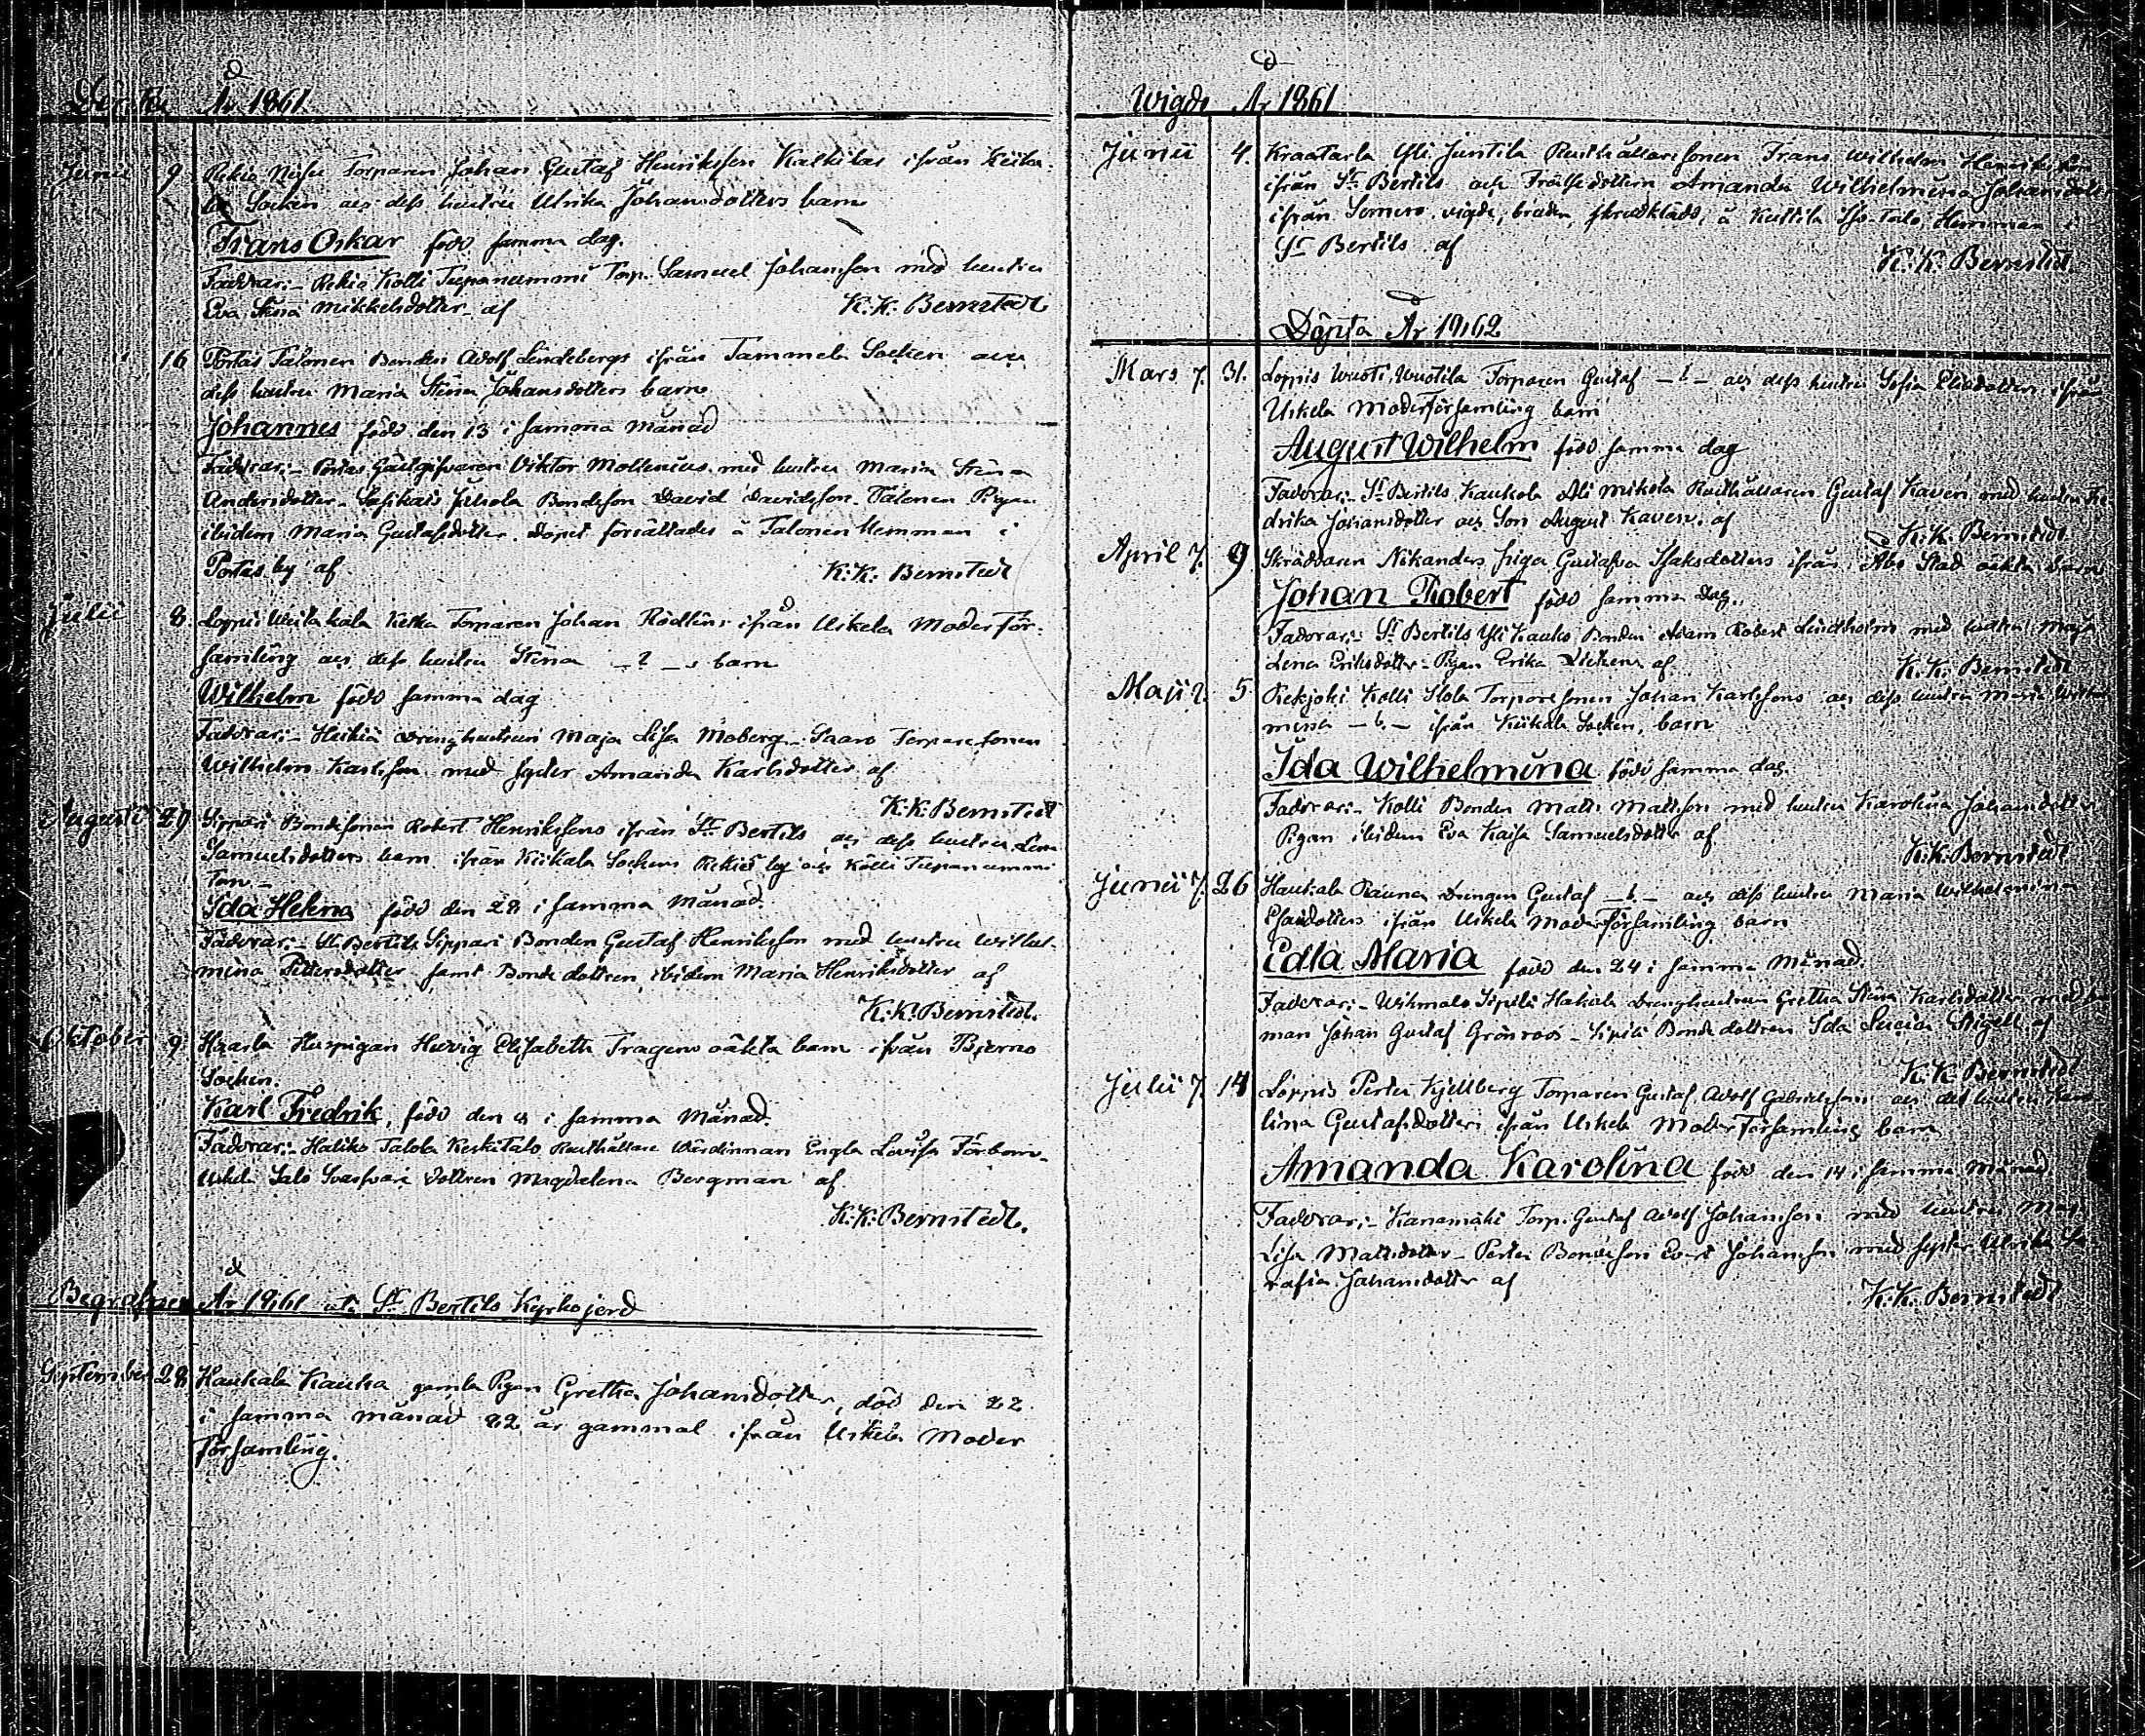 Döpta År 1861.
Junii 9 Rekio Nisu Torparen Johan Gustaf Henriksson Kaskilas ifrån Kiika-
la Socken och dess hustru Ulrika Johansdotters barn
Frans Oskar född samma dag.
Faddrar:- Rekio Kolli Tupanummi Torp. Samuel Johansson med hustru
Eva Stina Mikkelsdotter af K.K. Bernstedt
" 16 Portas Talonen Bonden Adolf Lindebergs ifrån Tammela Socken och
dess hustru Maria Stina Johansdotters barn
Johannes född den 13 i samma månad
Faddrar:- Portas Gästgifvaren Viktor Mollenius med hustru Maria Stina
Andersdotter - Bondeson David Davidsson - Talonen Pigan
ibidem Maria Gustafsdotter. Dopet förrättades å Talonen Hemman i
Portas by af K.K. Bernstedt
Julii 8. Loppis Torparen Johan Rödlins ifrån Uskela Moderför-
samling och dess hustru Stina - ? - s barn
Wilhelm född samma dag
Faddrar:- Heikiä Drenghustrun Maja Lisa Moberg - Saaro Torparesonen
Wilhelm Karlsson med syster Amanda Karlsdotter af
K.K. Bernstedt
Augusti 29 Sippari Bondesonen Robert Henrikssons ifrån St Bertils och dess hustru Lena
Samuelsdotters barn ifrån Kiikala Sockens Rekio by och Kolli Tupanummi
Torp -
Ida Helena född den 28 i samma månad.
Faddrar:- St Bertils Sippari Bonden Gustaf Henriksson med hustru Wilhel-
mina Pettersdotter samt Bonde dottren ibidem Maria Henriksdotter af
K.K. Bernstedt.
Oktober 9. Haarla Huspigan Hevig Elisabeth Tragens oäkta barn ifrån Bjerno
Socken.
Karl Fredrik, född den 8 i samma månad.
Faddrar:- Haliko Talola Keskitalo Rusthållare Wärdinnan Engla Lovisa Förbom -
Uskela Salo dottren Magdalena Bergman af
K.K. Bernstedt.
Begrafne År 1861 uti St Bertils Kyrkojord
September 28 Haukala Kauka gamla Pigan Gretha Johansdotter, död den 22
i samma månad 82 år gammal ifrån Uskela Moder
församling.
Wigde År 1861
Junii 4. Kraatarla Yli Juntila Rusthållaresonen Frans Wilhelm Henriksson
ifrån St Bertils och Amanda Wilhelmina Johansdotter
ifrån Somero, vigde, bruden skrudklädd, å Kuttila Iso-Talo, Hemman i
St Bertils af
K.K. Bernstedt.
Döpta År 1862
Mars 7. 31. Loppis Wuoti Wuotila Torparen Gustaf - ? - och dess hustru Sofia ifrån
Uskela Moderförsamling barn
August Wilhelm född samma dag
Faddrar:- St Bertils Kaukola Ali Mikola Rusthållaren Gustaf Kaven med hustru Fre-
drika Johansdotter och Son August Kaven. af
K.K. Bernstedt.
April 7. 9. Skräddaren Nikanders Gustafva Isaksdotters ifrån Åbo Stad oäkta barn
Johan Robert född samma dag.
Faddrar:- St Bertils Yli Kauko Bonden Adam Robert Lindholm med hustru Maja
Lena Eriksdotter - Pigan Erika af
K.K. Bernstedt
Maji 7. 5. Rekjoki Kolli Torparesonen Johan Karlssons och dess hustru Maria Wilhel-
mina - ? - ifrån Kiikala Socken, barn
Ida Wilhelmina född samma dag.
Faddrar:- Kolli Bonden Matts Mattsson med hustru Karolina Johansdotter
Pigan ibidem Eva Kaisa Samuelsdotter af
K.K. Bernstedt
Junii 7. 26 Haukala Rauna Drengen Gustaf - ? - och dess hustru Maria Wilhelmina
Esaidotters ifrån Uskela Moderförsamling barn
Edla Maria född den 24 i samma månad.
Faddrar:- Wihmalo Sipilä Hakala Drenghustrun Gretha Stina Karlsdotter med
man Johan Gustaf Grönroos - Sipilä Bonde dottren Ida Lucia af
K.K. Bernstedt
Julii 7. 14 Loppis Pertu Kjellberg Torparen Gustaf Adolf Gabrielssons och dess hustru Karo-
lina Gustafsdotters ifrån Uskela Moderförsamling barn
Amanda Karolina född den 14 i samma månad
Faddrar:- Kanamäki Torp. Gustaf Adolf Johansson med hustru Maja
Lisa Mattsdotter - Pertu Bondeson Evert Johansson med syster Ulrika Se-
rafia Johansdotter af
K.K. Bernstedt